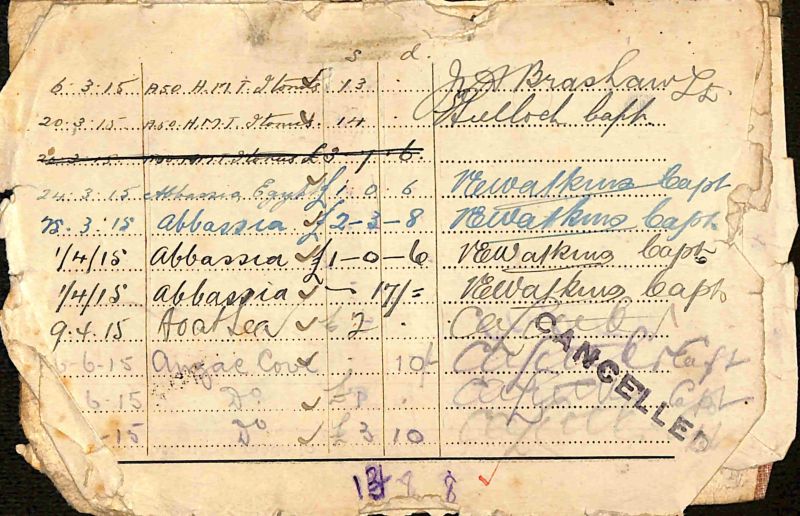 s. d.
6.3.15 A50 H.M.T. Itonus £ 13 . J A Brashaw Lt.
20.3.15 A50 H.M.T. Itonus. 14 . Capt.
20.3.15 A50 HMT Itonus £3 7 .6.
24.3.15 Abbassia Egypt £1 0 6 NEWatkins Capt
25.3.15 Abbassia £2-3-8 NEWatkins Capt.
1/4/15 Abbassia £1-0-6 NEWatkins Capt
1/4/15 Abbassia — 17/= NEWatkins Capt.
9.4.15 At Sea £ 2 .
6-6-15 Anzac Cove 10/- Capt
6-15 Do £ Capt
-15 Do £ 3 10
CANCELLED
8 8